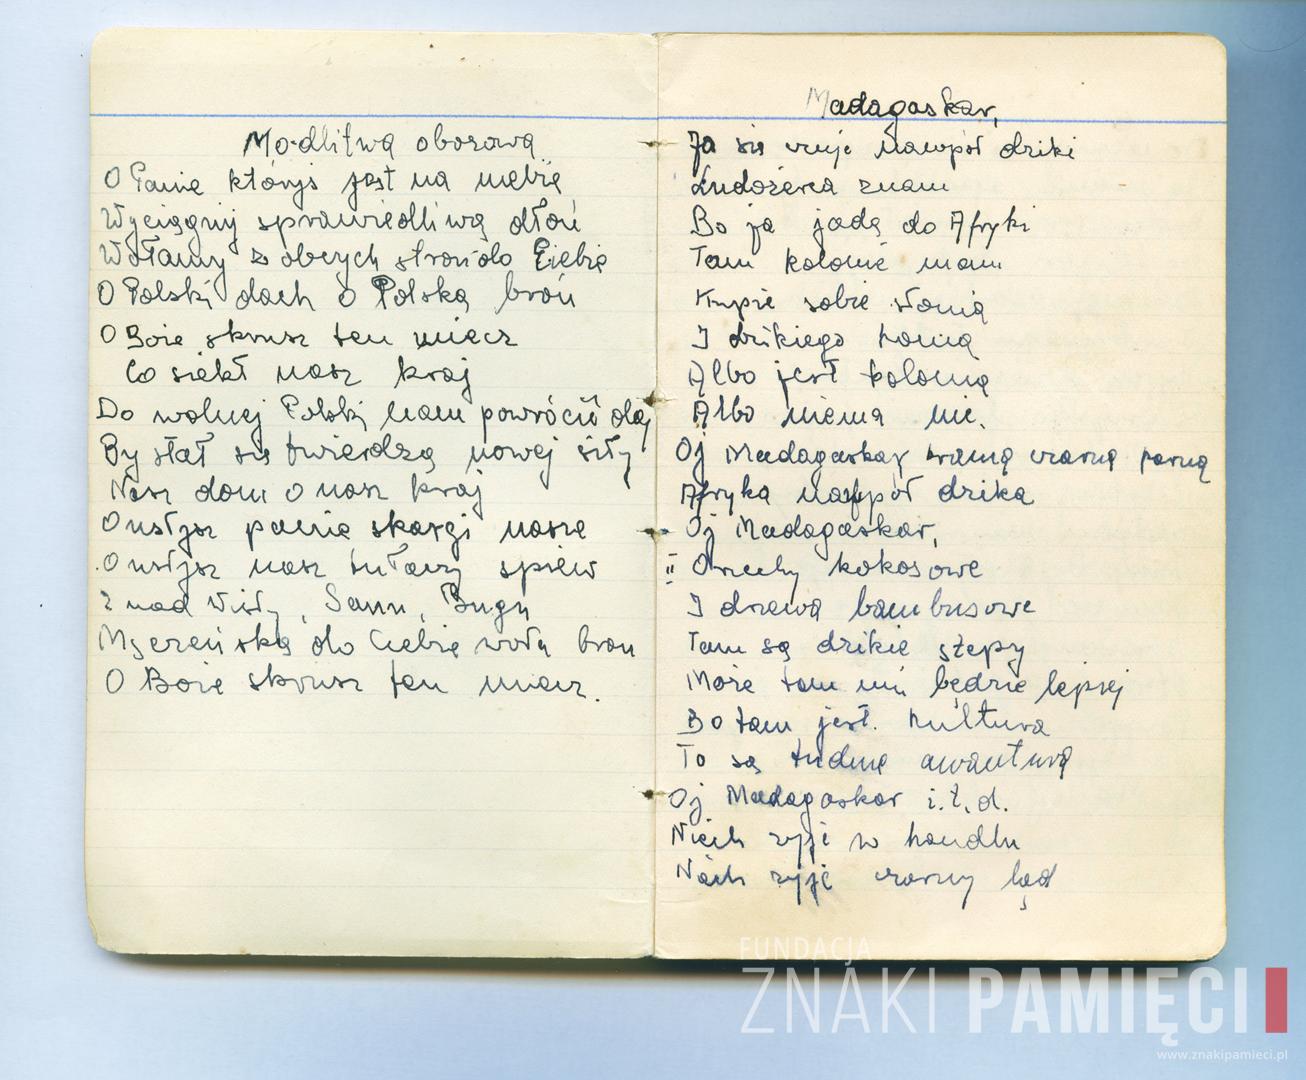 Modlitwa obozowa
O Panie któryś jest na niebie
Wyciągnij sprawiedliwą dłoń
Wołamy z obcych stron do Ciebie
O Polski dach o Polską broń
O Boże skrusz ten miecz
Co siekł nasz kraj
Do wolnej Polski nam powrócić daj
By stał się twierdzą nowej siły
Nasz dom o nasz kraj
O usłysz panie skargi nasze
O usłysz nasz tułaczy śpiew
Z nad Wisły, Sanu, Bugu
Męczeńska do Ciebie woła bron
O Boże skrusz ten miecz.
Madagaskar,
Ja się czuje nawpół dziki
Ludożerca znam
Bo ja jadę do Afryki
Tam kolonie mam
Kupie sobie słonia
I dzikiego konia
Albo jest kolonia
Albo niema nic.
Oj Madagaskar kraina czarna parna
Afryka nawpół dzika
Oj Madagaskar,
II Orzechy kokosowe
I drzewa bambusowe
Tam są dzikie stepy
Może tam mi będzie lepiej
Bo tam jest. Kultura
To są trudne awantura
Oj Madagaskar i.t.d.
Niech żyje w handlu
Niech żyje czarny ląd
FUNDACJA
ZNAKI PAMIĘCI
www.znakipamieci.pl